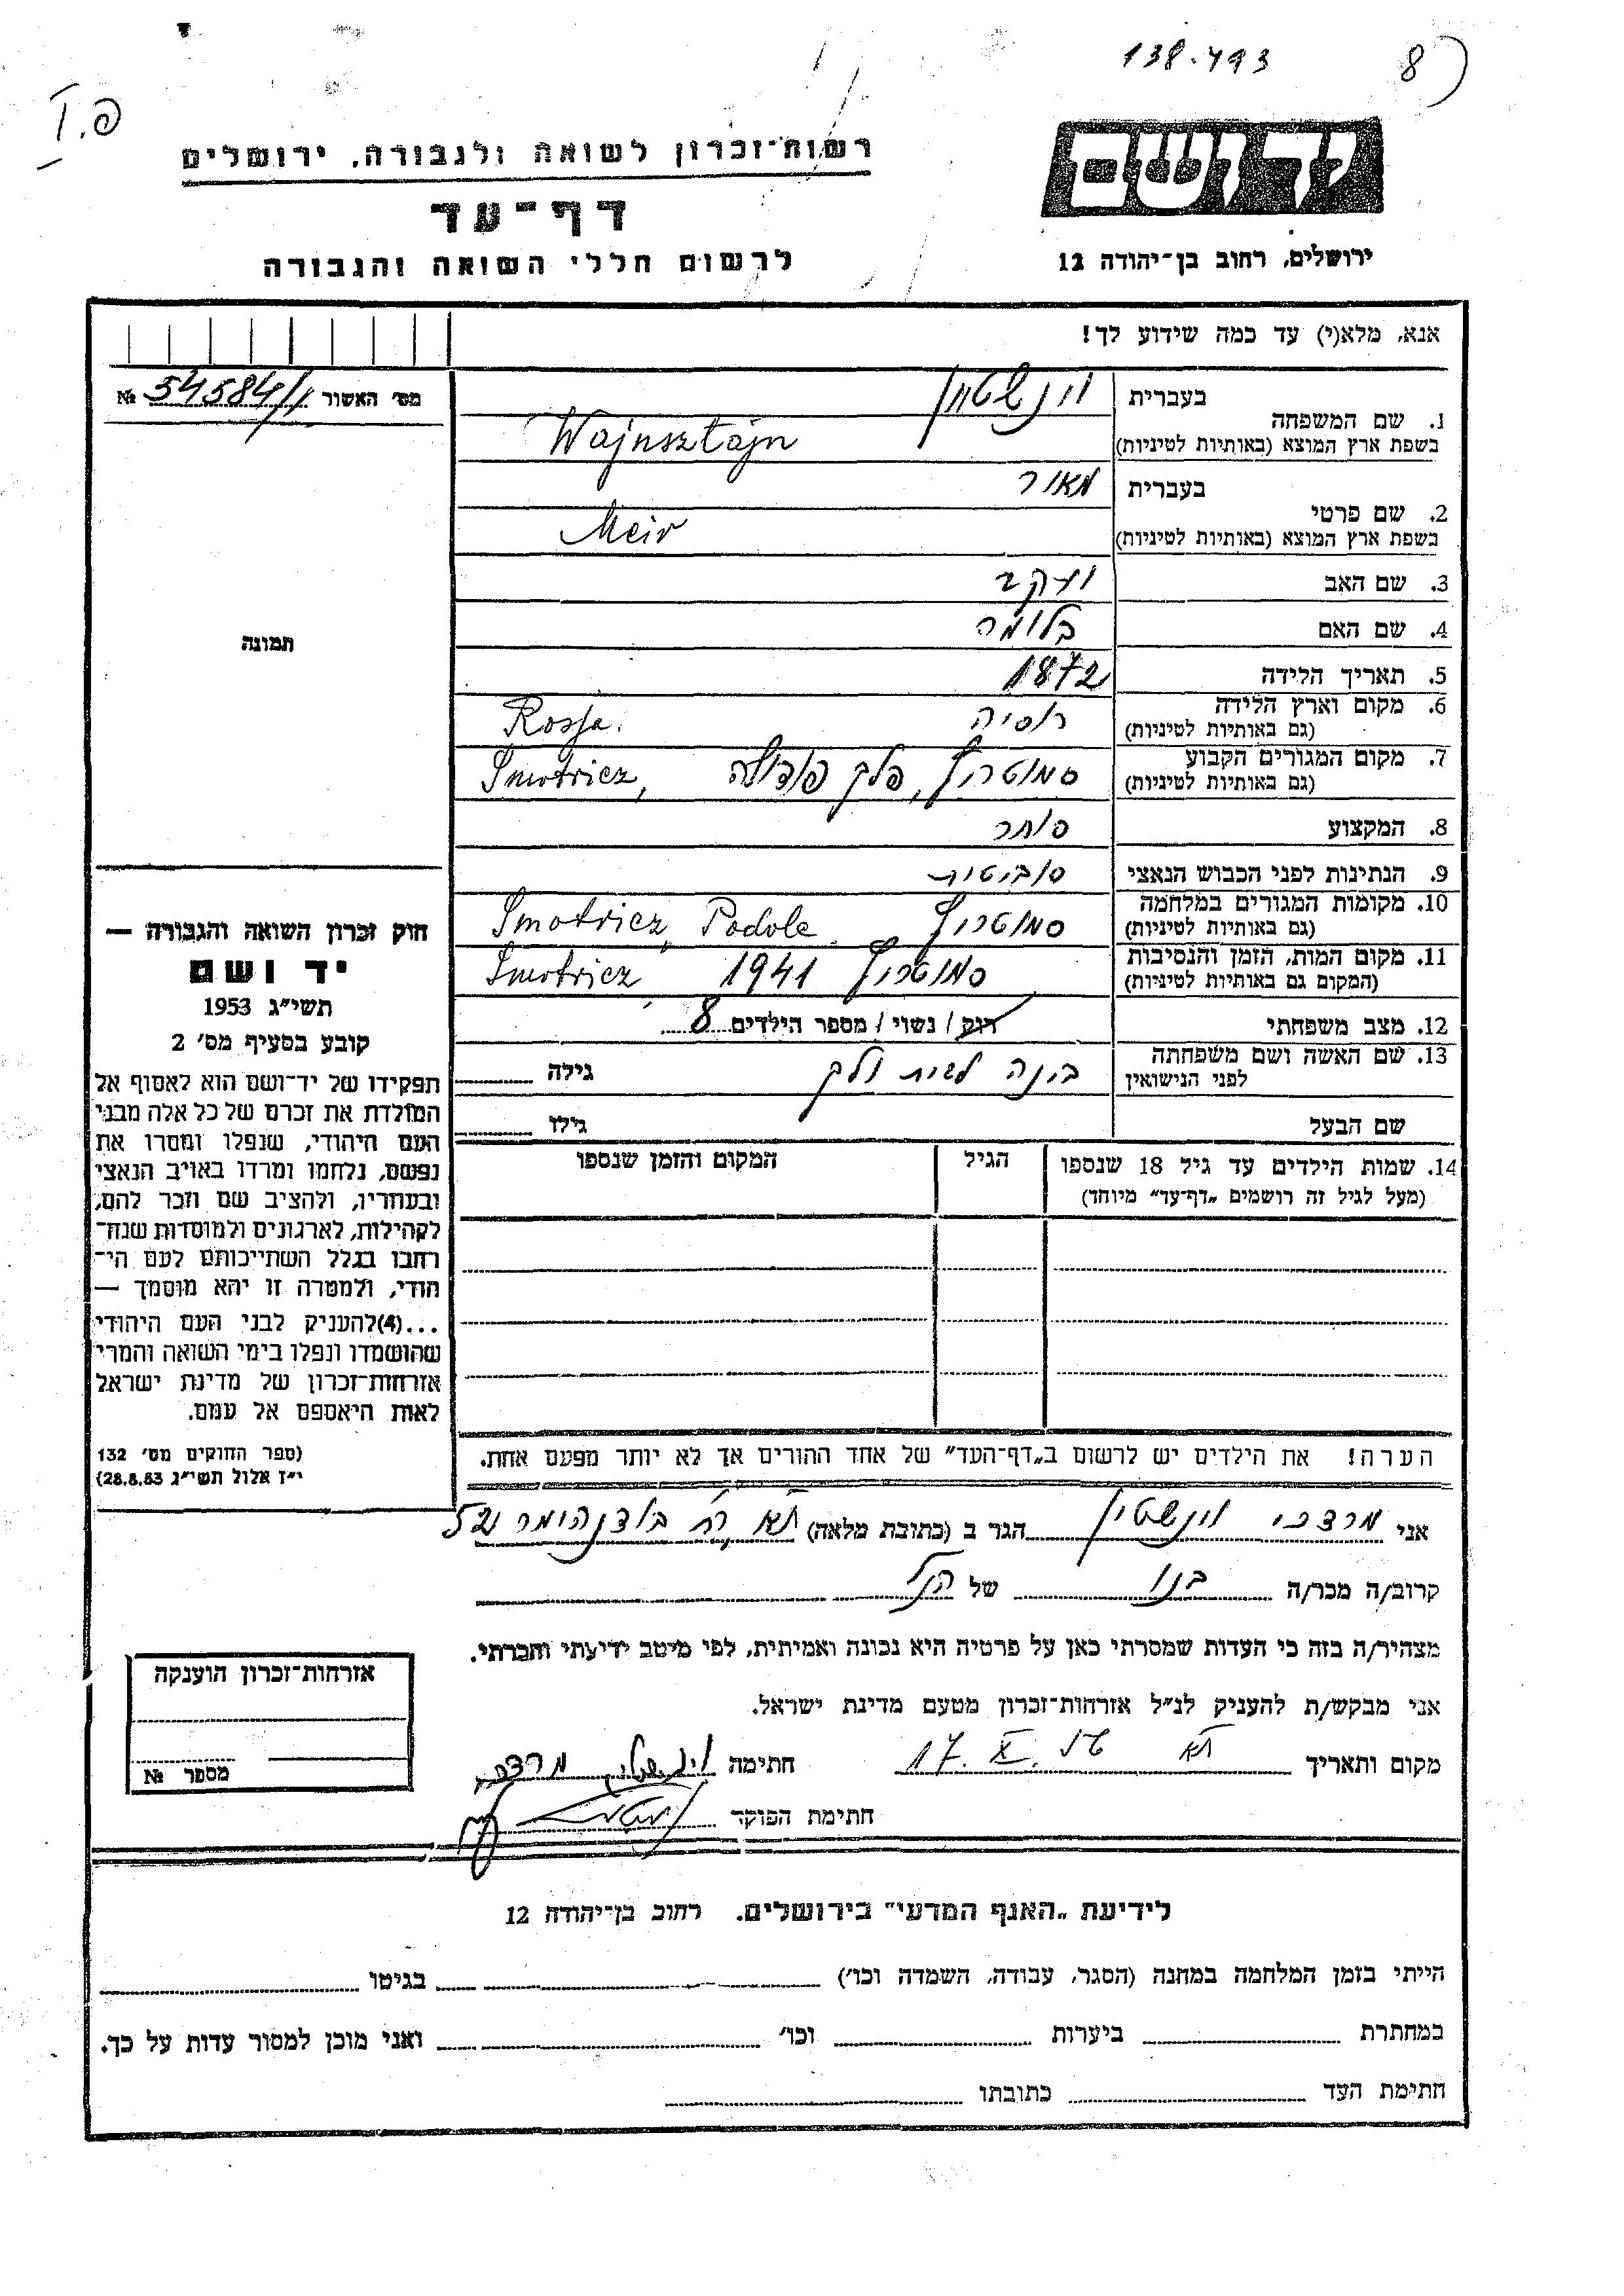 138.493
8
רשות־זכרון לשואה ולגבורה, ירושלים
דף־עד
לרשום חללי השואה והגבורה
יד ושם
ירושלים, רחוב בן־יהודה 12
אנא, מלא(י) עד כמה שידוע לך!
מס' האשור 54584/1 №
תמונה
1. שם המשפחה
בעברית וינשטיין
בשפת ארץ המוצא (באותיות לטיניות) Wajnsztajn
2. שם פרטי
בעברית מאיר
בשפת ארץ המוצא (באותיות לטיניות) Meir
3. שם האב יעקב
4. שם האם בלומה
5. תאריך הלידה 1872
6. מקום וארץ הלידה רוסיה Rosja.
(גם באותיות לטיניות)
7. מקום המגורים הקבוע סמוטריץ, פלך פודוליה Smotricz,
(גם באותיות לטיניות)
8. המקצוע סוחר
9. הנתינות לפני הכבוש הנאצי סוביטית
10. מקומות המגורים במלחמה סמוטריץ Smotricz, Podole
(גם באותיות לטיניות)
11. מקום המות, הזמן והנסיבות סמוטריץ 1941 Smotricz
(המקום גם באותיות לטיניות)
12. מצב משפחתי רוק / נשוי / מספר הילדים 8
13. שם האשה ושם משפחתה בינה לבית גילה
לפני הנישואין
שם הבעל גילו
14. שמות הילדים עד גיל 18 שנספו הגיל המקום והזמן שנספו
(מעל לגיל זה רושמים „דף־עד" מיוחד)
הערה! את הילדים יש לרשום ב„דף־העד" של אחד ההורים אך לא יותר מפעם אחת.
חוק זכרון השואה והגבורה —
יד ושם
תשי"ג 1953
קובע בסעיף מס' 2
תפקידו של יד־ושם הוא לאסוף אל
המולדת את זכרם של כל אלה מבני
העם היהודי, שנפלו ומסרו את
נפשם, נלחמו ומרדו באויב הנאצי
ובעוזריו, ולהציב שם וזכר להם,
לקהילות, לארגונים ולמוסדות שנח־
רבו בגלל השתייכותם לעם הי־
הודי, ולמטרה זו יהא מוסמך —
...(4)להעניק לבני העם היהודי
שהושמדו ונפלו בימי השואה והמרי
אזרחות־זכרון של מדינת ישראל
לאות היאספם אל עמם.
(ספר החוקים מס' 132
י"ז אלול תשי"ג 28.8.53)
אני מרדכי וינשטיין הגר ב (כתובת מלאה) ת"א רח'
קרוב/ה מכר/ה בנו של הנ"ל
מצהיר/ה בזה כי העדות שמסרתי כאן על פרטיה היא נכונה ואמיתית, לפי מיטב ידיעתי והכרתי.
אני מבקש/ת להעניק לנ"ל אזרחות־זכרון מטעם מדינת ישראל.
מקום ותאריך ת"א 17. X. חתימה וינשטיין מרדכי
חתימת הפוקד
אזרחות־זכרון הוענקה
מספר №
לידיעת „האגף המדעי" בירושלים. רחוב בן־יהודה 12
הייתי בזמן המלחמה במחנה (הסגר, עבודה, השמדה וכו') בגיטו
במחתרת ביערות וכו' ואני מוכן למסור עדות על כך.
חתימת העד כתובתו